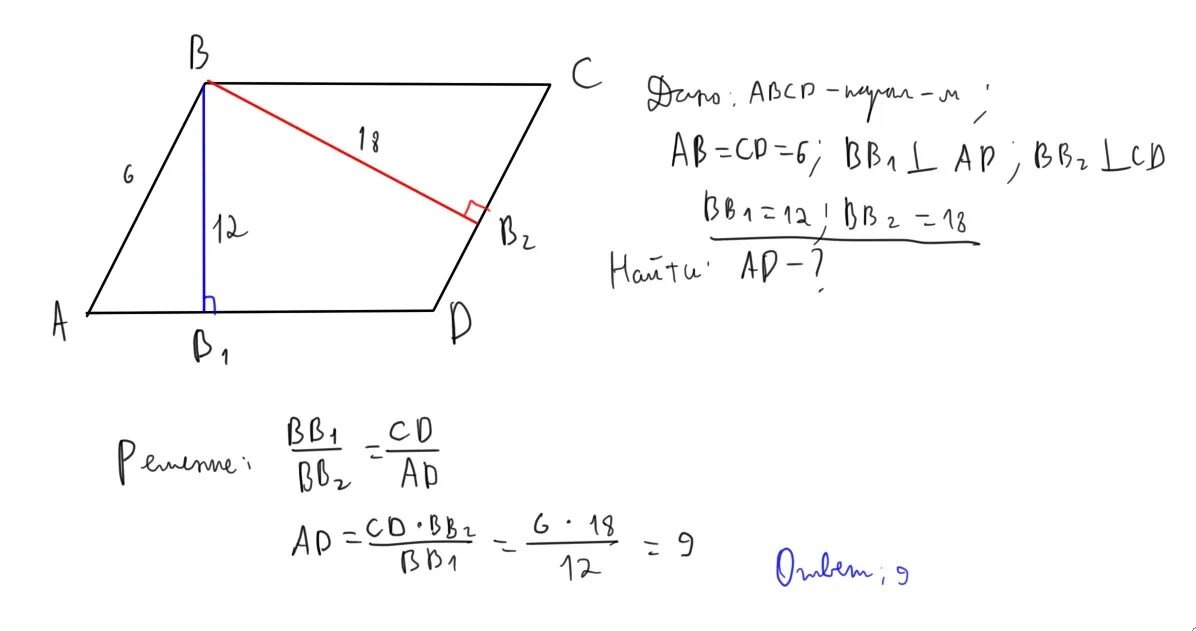 B
C
6
18
12
B₂
A
B₁
D
Дано: ABCD – парал – м ;
AB = CD = 6; BB₁ ⊥ AD ; BB₂ ⊥ CD
BB₁ = 12 ; BB₂ = 18
Найти: AD – ?
Решение: BB₁/BB₂ = CD/AD
AD = CD · BB₂/BB₁ = 6 · 18/12 = 9
Ответ: 9